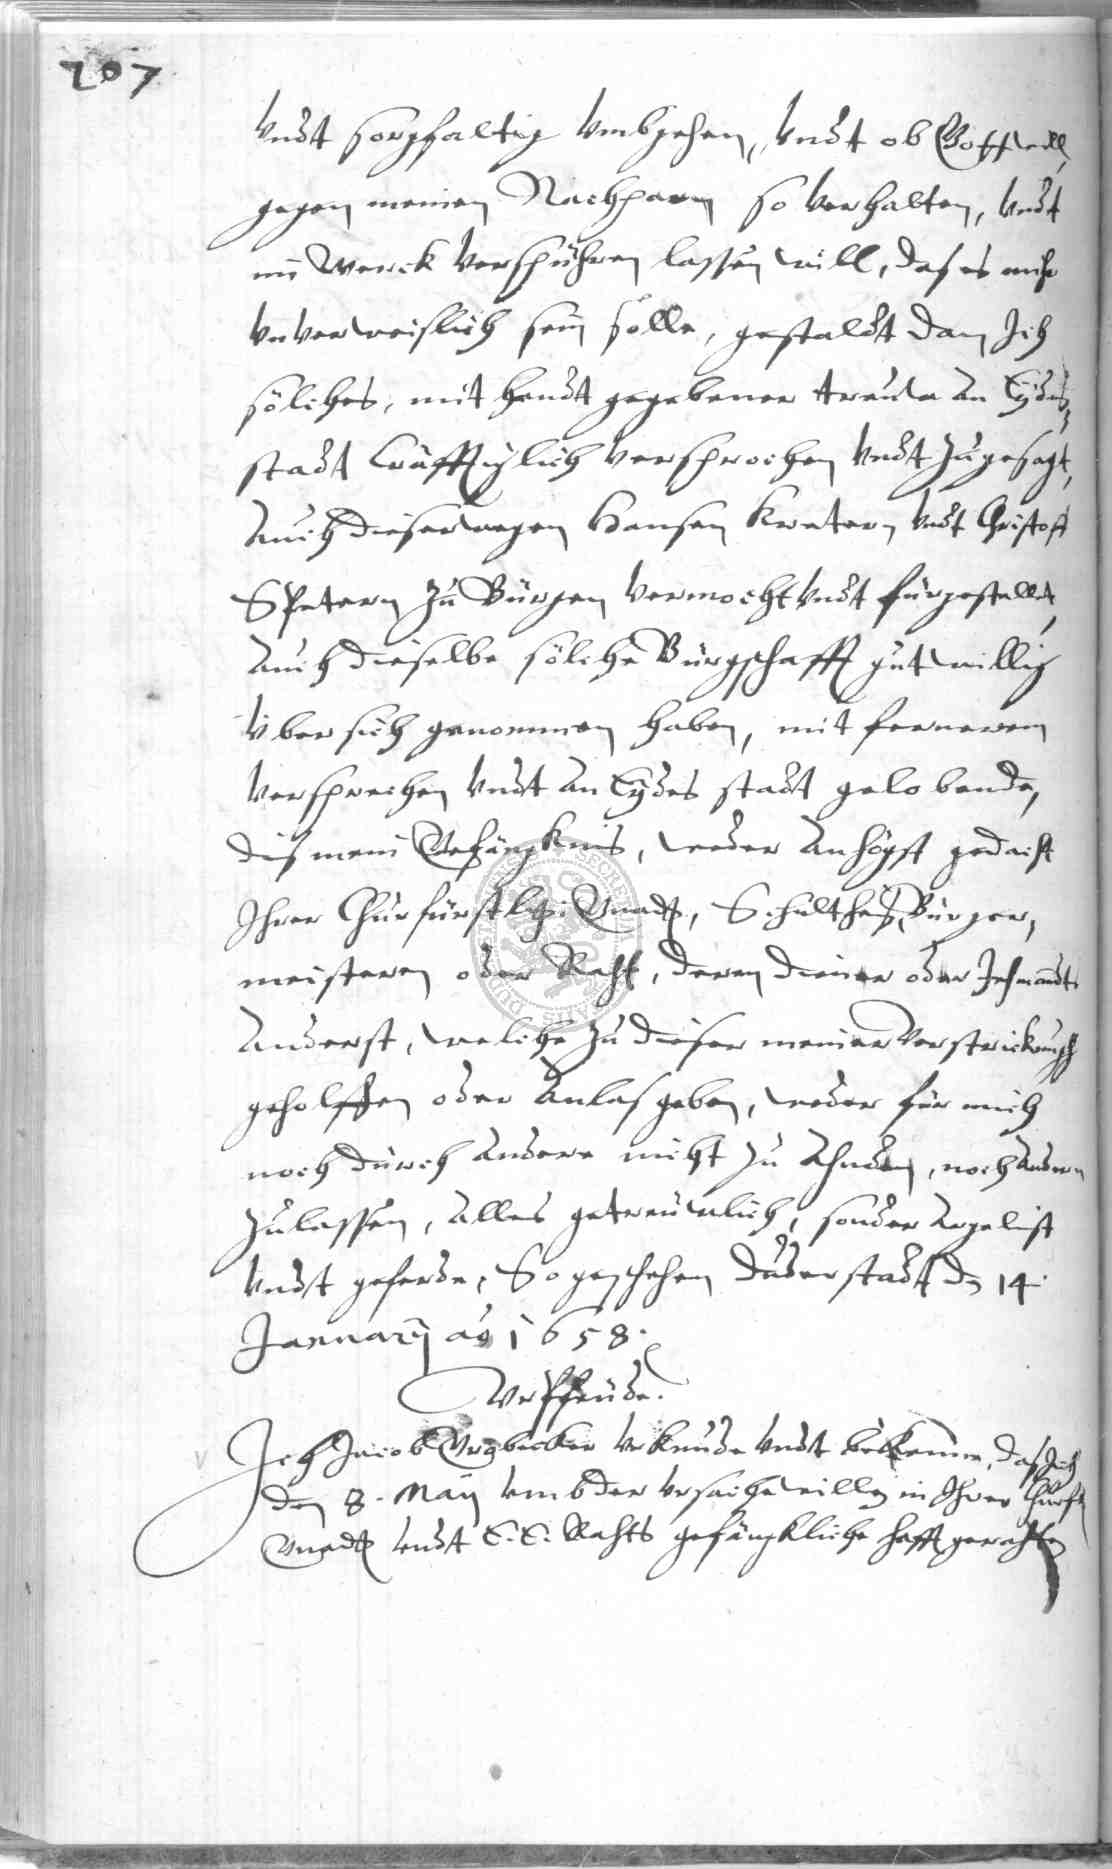 207
Vndt sorgfaltig Vmbgehen, Vndt ob Gott will,
gegen meinen Nachparn so Verhalten, Vndt
im Werck Verspühren lassen will, das es mihr
Vnverweislich sein sölle, gestaldt dan Ich
söliches, mit handt gegebener trewe an Eydes
stadt Cräfftiglich Versprochen Vndt zugesagt,
Auch dieserwegen Hansen Kretern Vndt Christoff
Petern zu Bürgen Vermocht Vndt fürgestellet,
Auch dieselbe söliche Bürgschafft gutwillig
Über sich genommen haben, mit fernerem
Versprechen Vndt an Eydes stadt gelobende,
dis mein Gefängknis, weder Anhögst gedacht
Ihrer Churfürstlich: Gnadt, Schultheis, Bürger,
meisteren oder Raht, deren diener oder Jehmandt
Anderst, weliche zu dieser meiner Verstrickungh
geholffen oder Anlas geben, weder für mich
noch durch Andere nicht zu Ahnden, noch Andern
zulassen, Alles getreüwlich, sonder Argelist
Vndt geferde, So geschehen Duderstadt dn 14.
January ao 1658.
Urpheude.
Ich Jacob Urbecker Uhrkunde Undt bekenne, das Ich
den 8. Maij umb der Ursache willen in Ihrer Churf.
Gnadt undt E. E. Rahts gefängkliche hafft gerahten
SECRET
DUDE